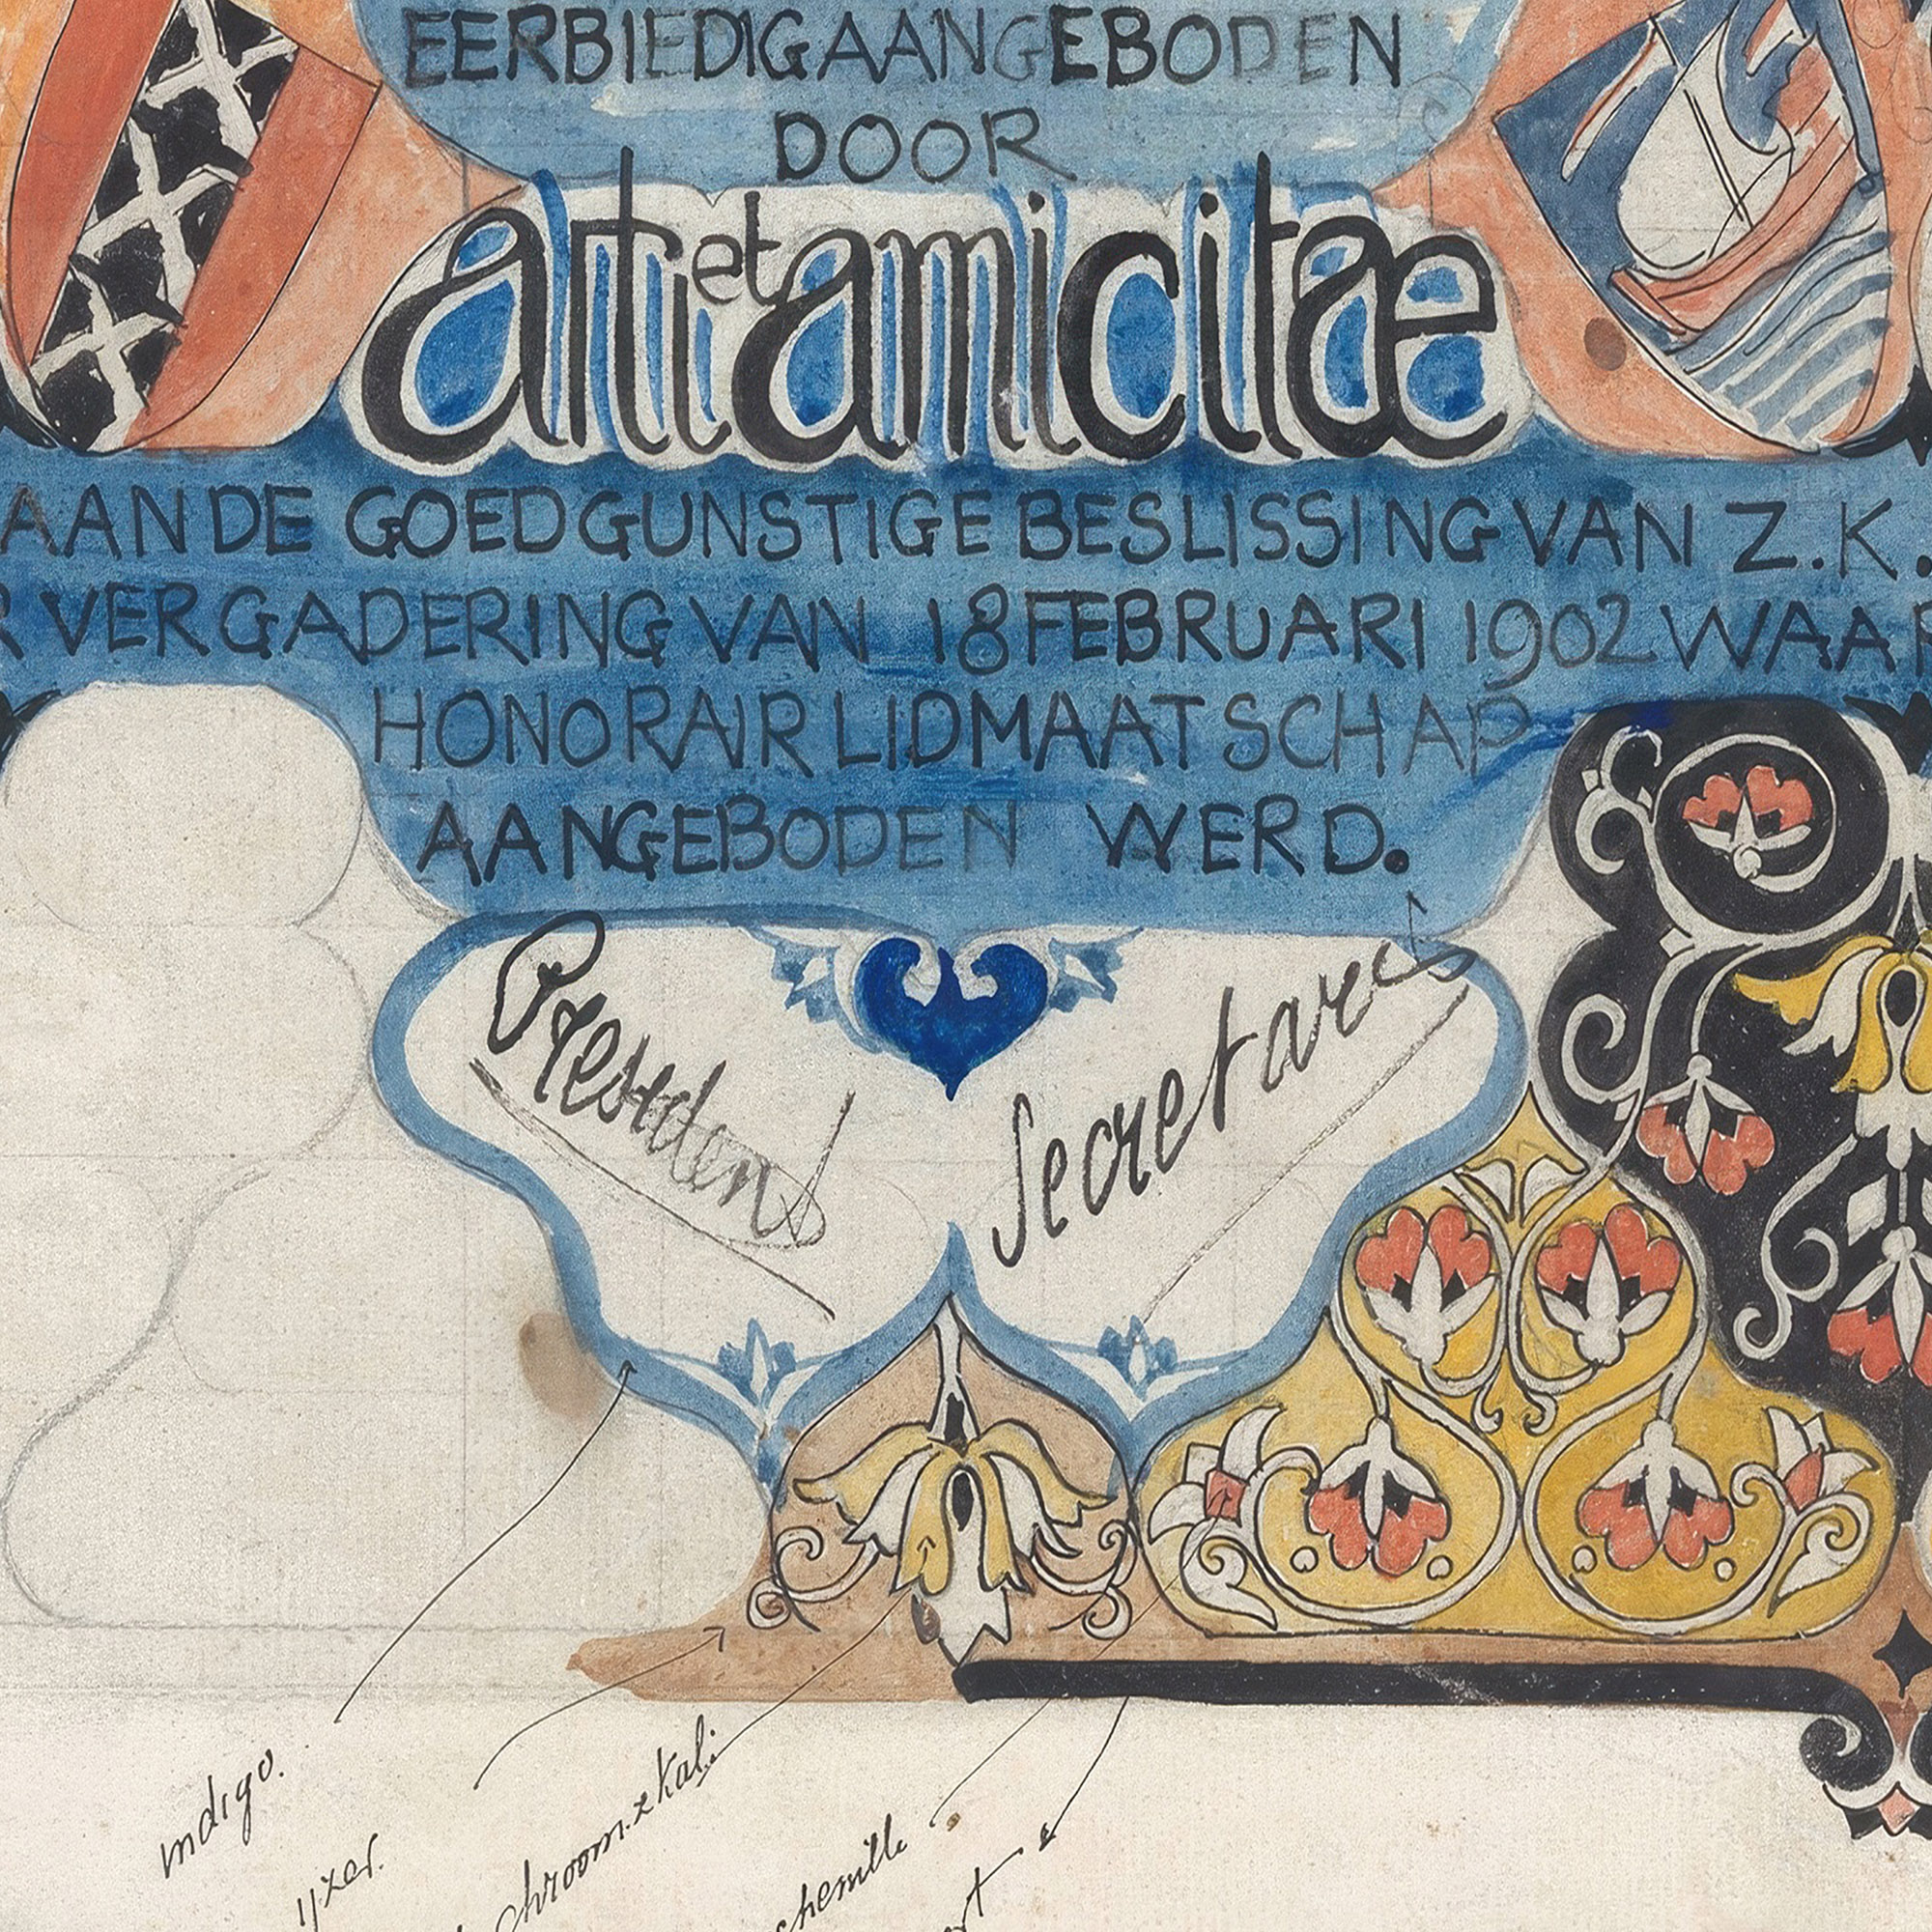 EERBIEDIG AANGEBODEN
DOOR
arti et amicitae
AAN DE GOEDGUNSTIGE BESLISSING VAN Z.K.
R VERGADERING VAN 18 FEBRUARI 1902 WAAR
HONORAIR LIDMAATSCHAP
AANGEBODEN WERD.
President
Secretaris
indigo.
ijzer.
chroomzkali
chenille
rt